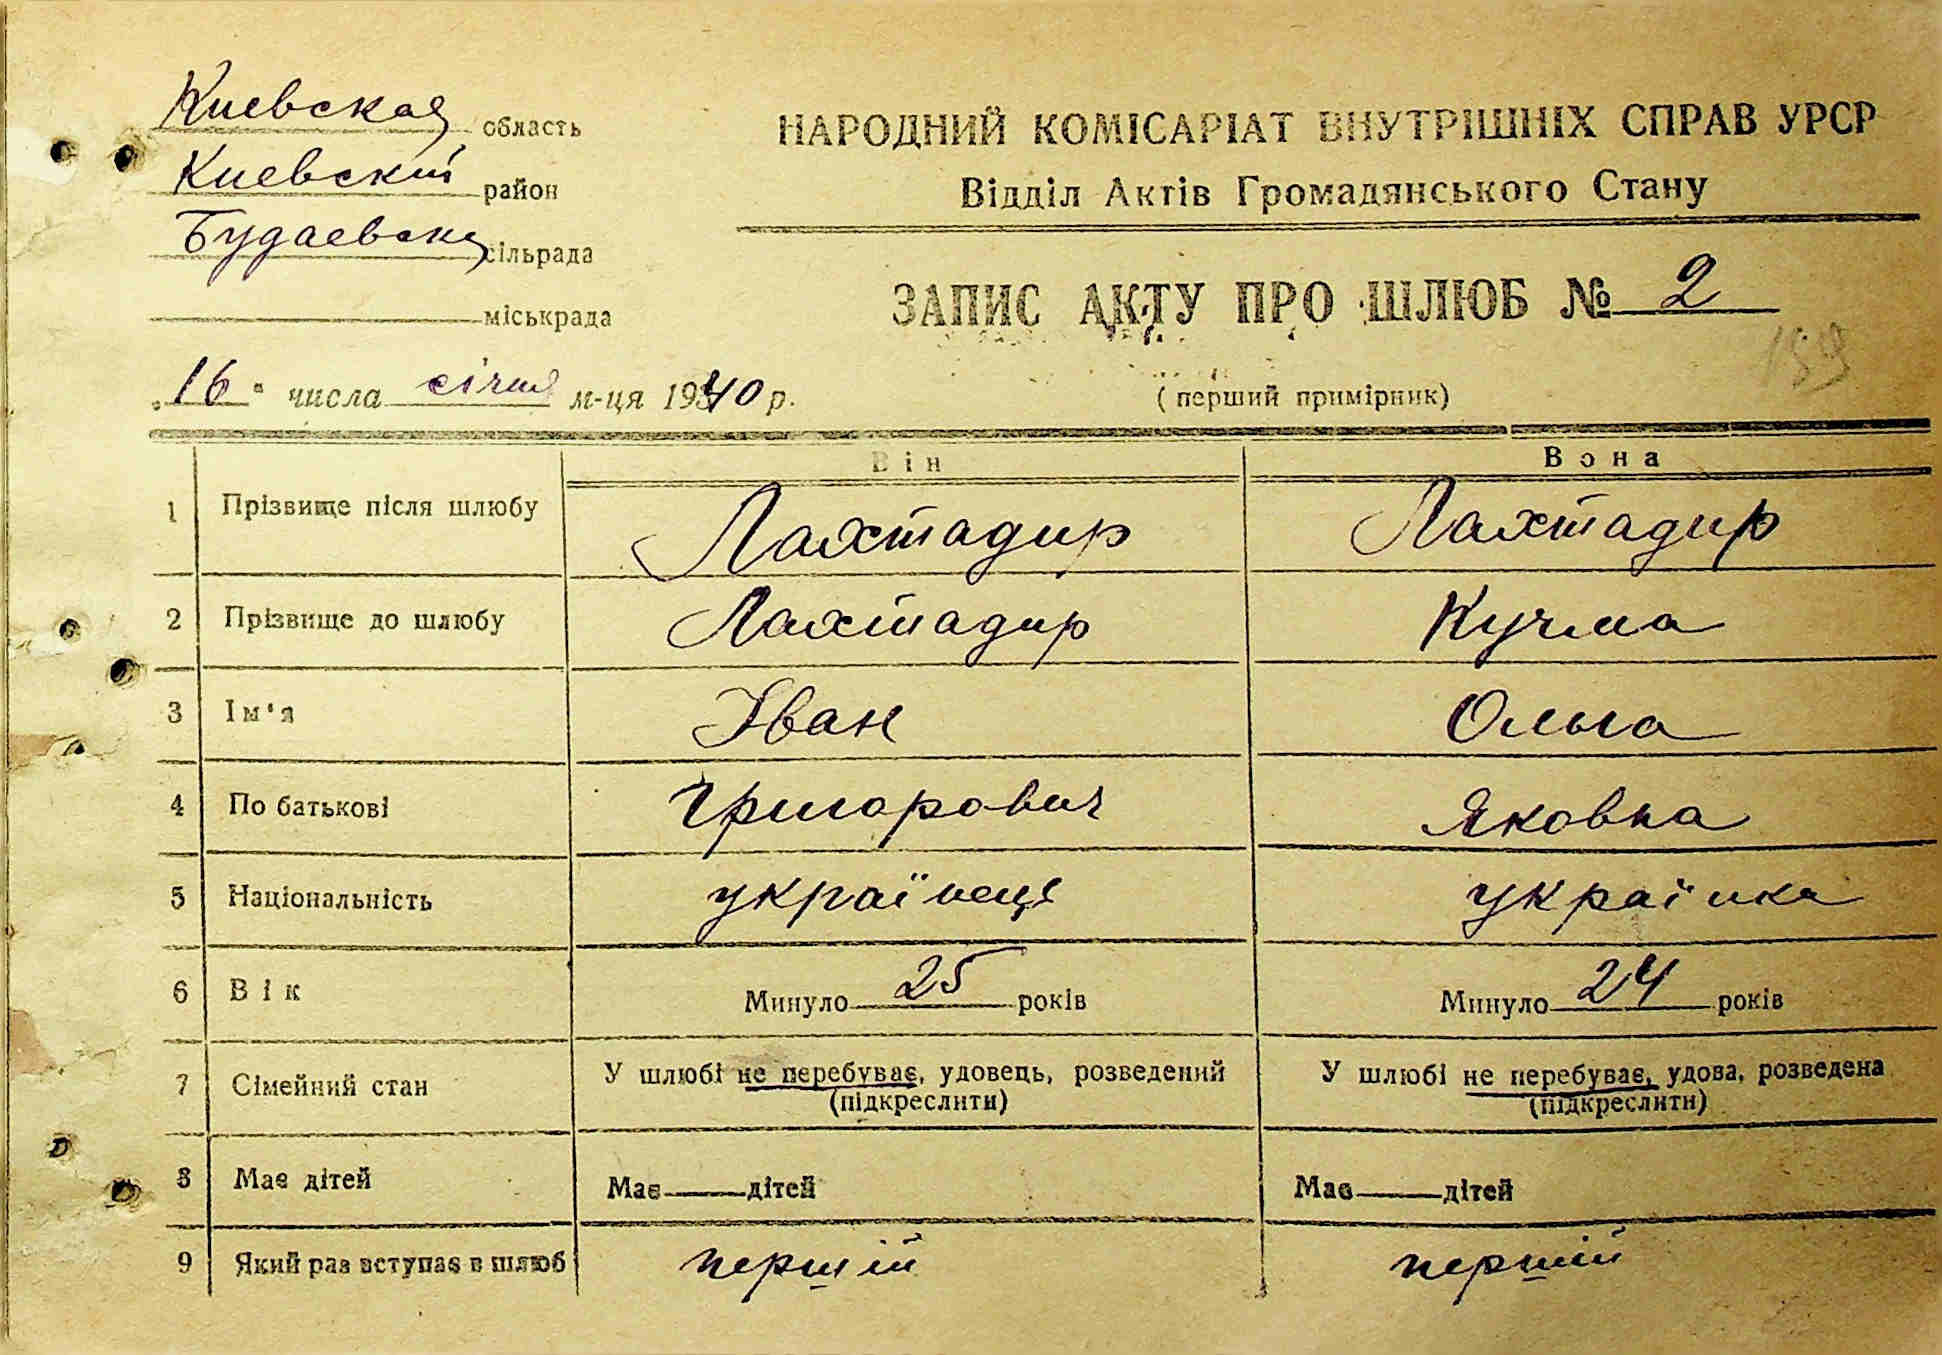 Киевская область
Киевский район
Будаевска сільрада
міськрада
НАРОДНИЙ КОМІСАРІАТ ВНУТРІШНІХ СПРАВ УРСР
Відділ Актів Громадянського Стану
ЗАПИС АКТУ ПРО ШЛЮБ № 2
„16" числа січня м-ця 1940 р.
(перший примірник)
Він Вона
1 Прізвище після шлюбу Лахтадир Лахтадир
2 Прізвище до шлюбу Лахтадир Кучма
3 Ім'я Іван Ольга
4 По батькові Григорович Яковна
5 Національність українець українка
6 Вік Минуло 25 років Минуло 24 років
7 Сімейний стан У шлюбі не перебуває, удовець, розведений У шлюбі не перебуває, удова, розведена
(підкреслити) (підкреслити)
8 Має дітей Має — дітей Має — дітей
9 Який раз вступає в шлюб перший перший